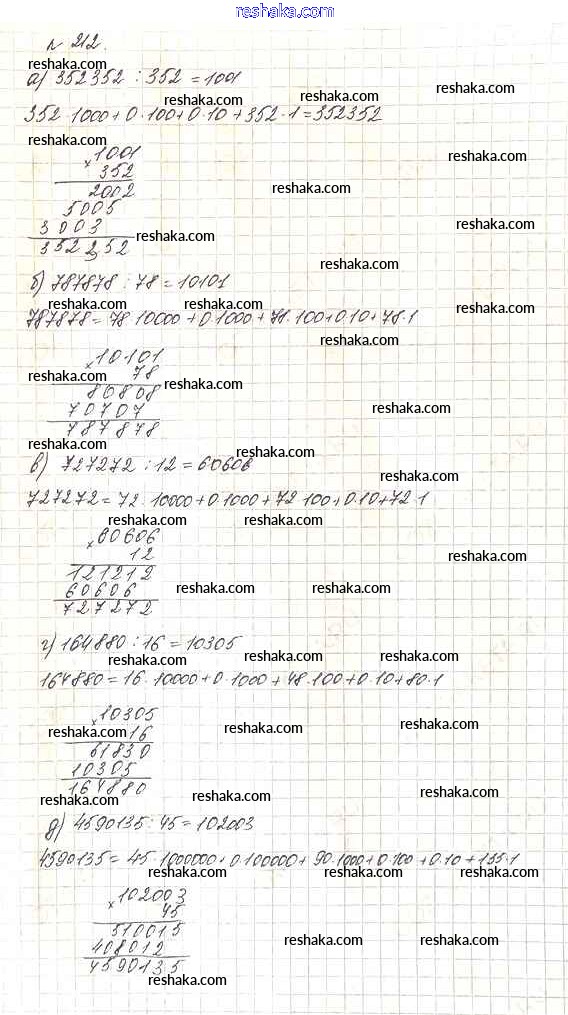 reshaka.com
№ 212.
reshaka.com
а) 352352 : 352 = 1001
reshaka.com reshaka.com reshaka.com
352·1000+0·100+0·10+352·1=352352
reshaka.com
×1001
reshaka.com
352
2002
reshaka.com
5005
3003
reshaka.com
reshaka.com
352352
reshaka.com
б) 787878 : 78 = 10101
reshaka.com reshaka.com reshaka.com
787878 = 78·10000+0·1000+78·100+0·10+78·1
reshaka.com
×10101
78
reshaka.com reshaka.com
80808
70707
reshaka.com
787878
reshaka.com
reshaka.com
в) 727272 : 12 = 60606
reshaka.com
727272 = 72·10000+0·1000+72·100+0·10+72·1
reshaka.com reshaka.com
×60606
12
reshaka.com
121212
60606
reshaka.com reshaka.com
727272
г) 164880 : 16 = 10305
reshaka.com reshaka.com reshaka.com
164880 = 16·10000+0·1000+48·100+0·10+80·1
×10305
16
reshaka.com reshaka.com reshaka.com
61830
10305
164880
reshaka.com reshaka.com reshaka.com
д) 4590135 : 45 = 102003
4590135 = 45·1000000+0·100000+90·1000+0·100+0·10+135·1
reshaka.com reshaka.com reshaka.com
×102003
45
510015
reshaka.com reshaka.com
408012
4590135
reshaka.com